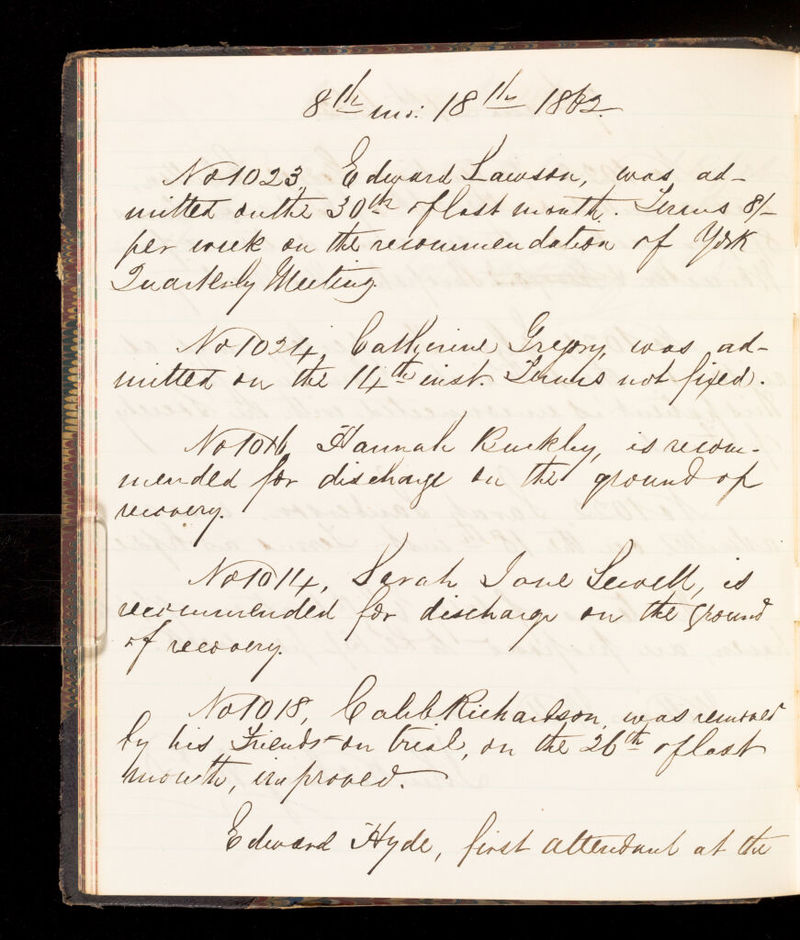 8th mo: 18th 1862.
No 1023, Edward Lawson, was ad-
mitted on the 30th of last month. Terms 8/-
per week on the recommendation of York
Quarterly Meeting.
No 1024, Catherine Gregory, was ad-
mitted on the 14th inst. Terms not fixed.
Hannah Buckley, is recom-
mended for discharge on the ground of
recovery.
No 1014, Sarah Jane Sewell, is
recommended for discharge on the ground
of recovery.
No 1018, Caleb Richardson, was removed
by his Friends on trial, on the 26th of last
month, improved.
Edward Hyde, first attendant at the